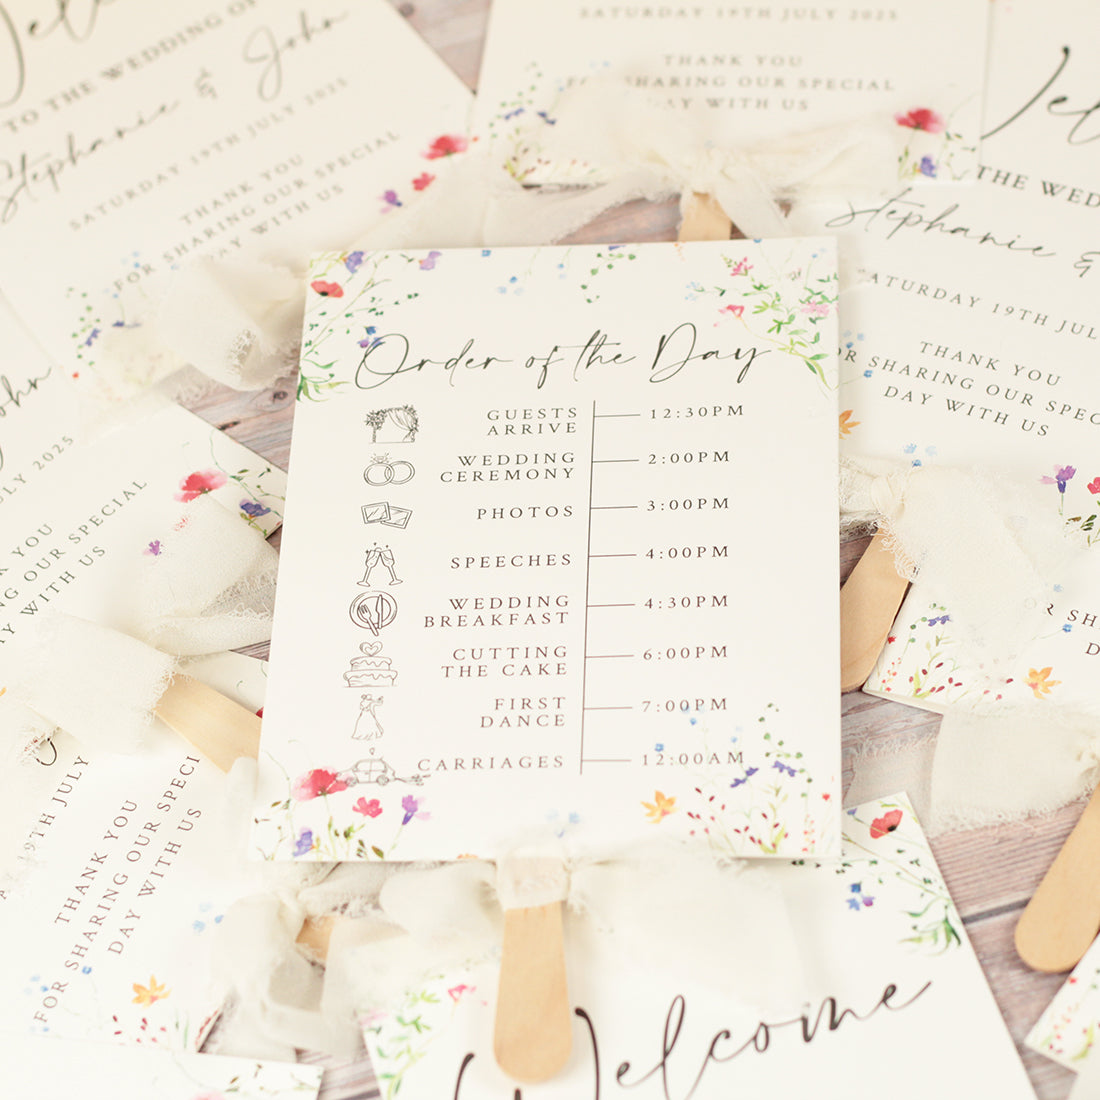 Wel
TO THE WEDDING OF
Stephanie & John
SATURDAY 19TH JULY 2025
THANK YOU
FOR SHARING OUR SPECIAL
DAY WITH US
SATURDAY 19TH JULY 2025
THANK YOU
FOR SHARING OUR SPECIAL
DAY WITH US
Wel
THE WED
Stephanie &
SATURDAY 19TH JUL
THANK YOU
OR SHARING OUR SPEC
DAY WITH US
Order of the Day
GUESTS
ARRIVE
12:30PM
WEDDING
CEREMONY
2:00PM
PHOTOS
3:00PM
SPEECHES
4:00PM
WEDDING
BREAKFAST
4:30PM
CUTTING
THE CAKE
6:00PM
FIRST
DANCE
7:00PM
CARRIAGES
12:00AM
John
ULY 2025
YOU
NG OUR SPECIAL
AY WITH US
19TH JULY
THANK YOU
FOR SHARING OUR SPECI
DAY WITH US
OR SH
D
Welcome